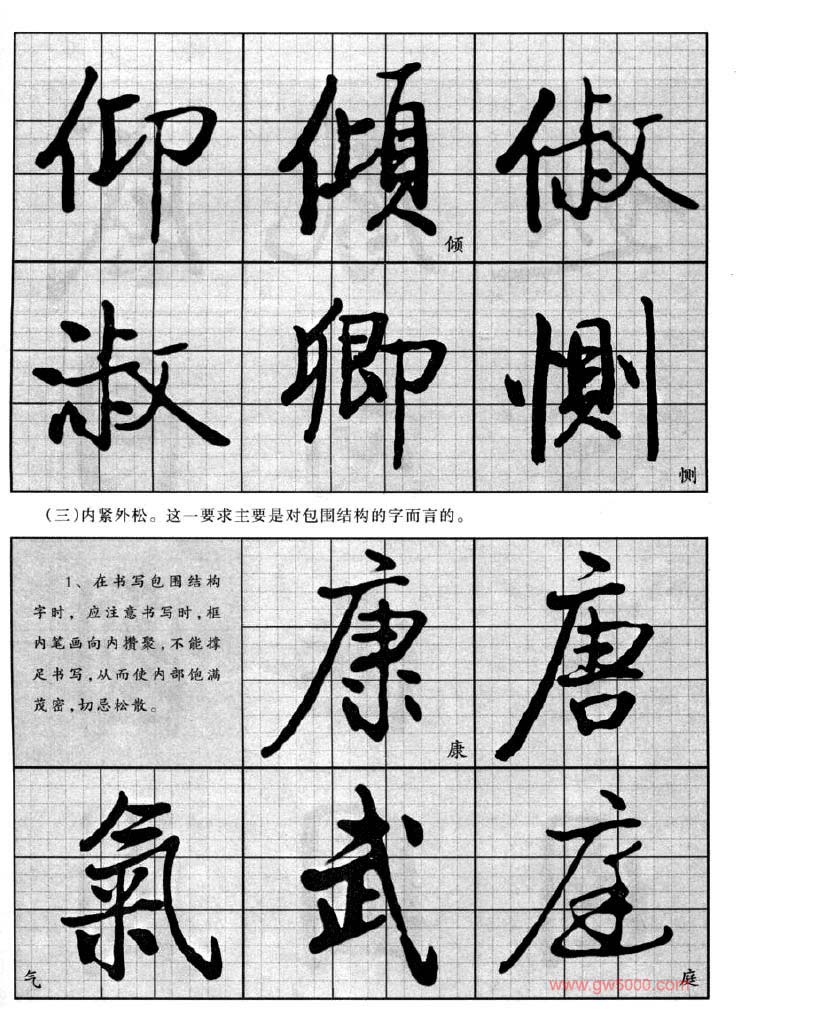 仰 傾 俶
倾
淑 卿 惻
恻
(三)内紧外松。这一要求主要是对包围结构的字而言的。
1、在书写包围结构
字时，应注意书写时，框
内笔画向内攒聚，不能撑
足书写，从而使内部饱满
茂密，切忌松散。
康 唐
康
氣 武 庭
气 庭
www.gw5000.com